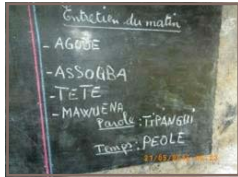 Entretien du matin
- AGUDE
- ASSOGBA
- TETE
- MAWUENA
Parole : TIPANGUI
Temps : PEOLE